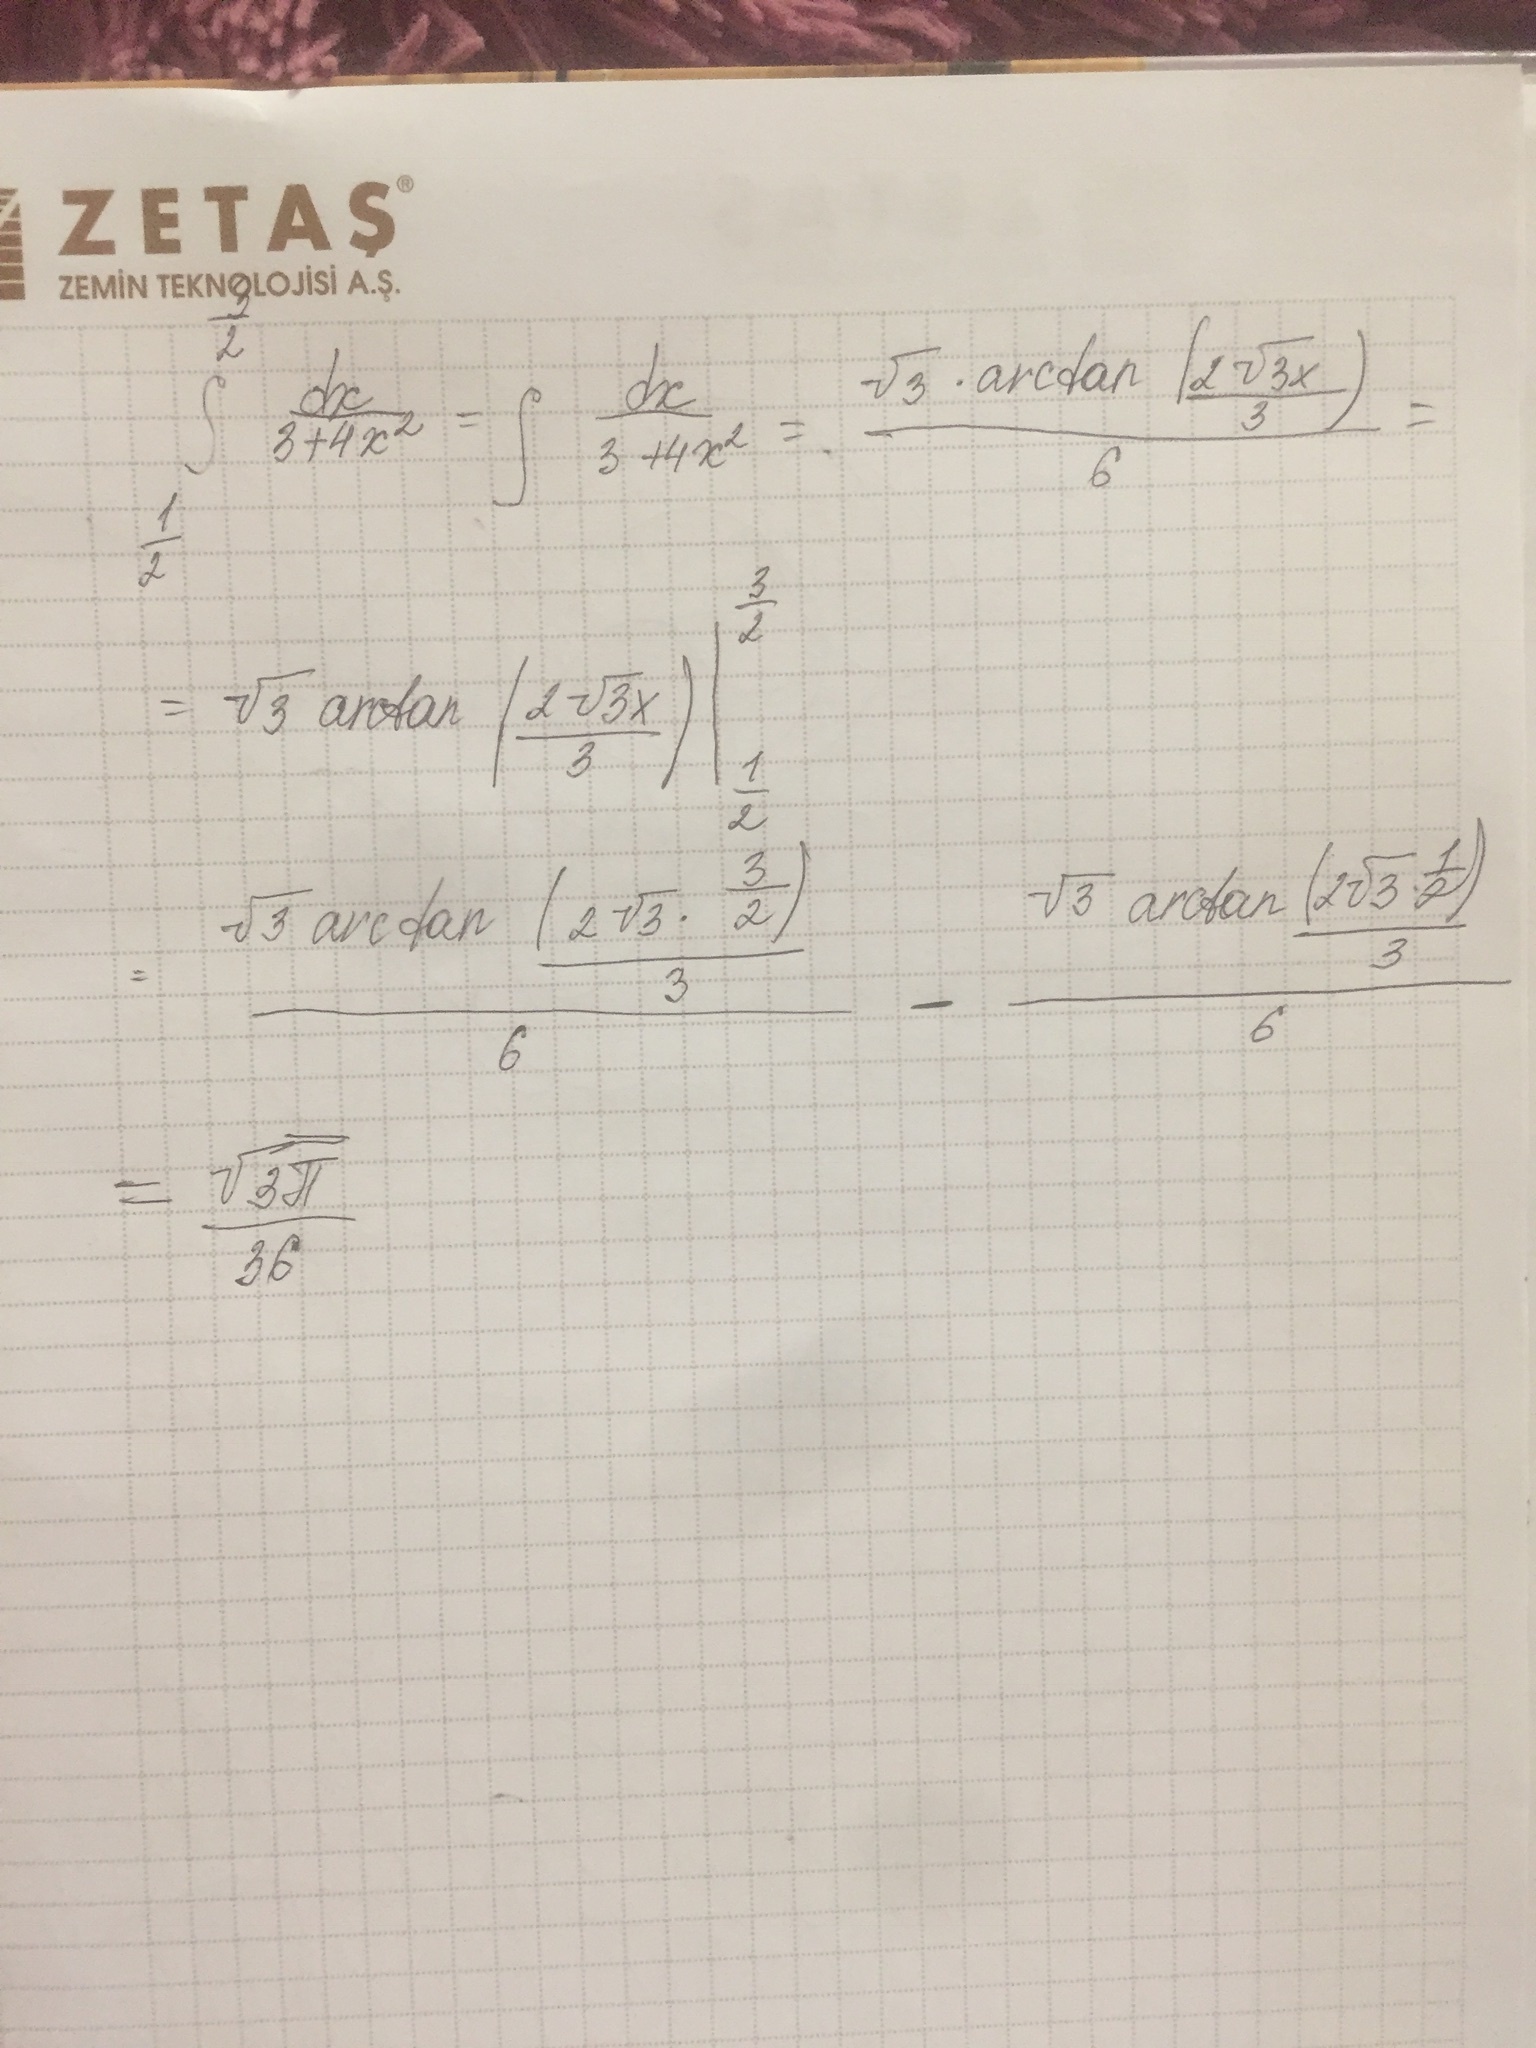 ZETAŞ®
ZEMİN TEKNOLOJİSİ A.Ş.
∫_{1/2}^{3/2} dx/(3+4x²) = ∫ dx/(3+4x²) = (√3 · arctan (2√3x/3))/6 =
= √3 arctan (2√3x/3) |_{1/2}^{3/2}
= (√3 arctan (2√3 · 3/2 / 3))/6 − (√3 arctan (2√3 · 1/2 / 3))/6
= √3π/36